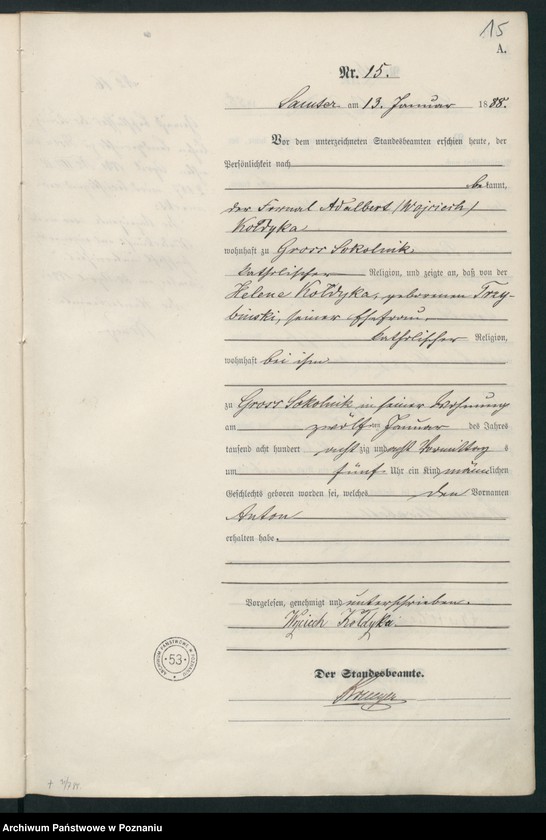 15
A.
Nr. 15.
Samter am 13. Januar 1888.
Vor dem unterzeichneten Standesbeamten erschien heute, der
Persönlichkeit nach
bekannt,
der Fornal Adalbert /Wojciech/
Kołdyka
wohnhaft zu Gross Sokolnik
katholischer Religion, und zeigte an, daß von der
Helene Kołdyka, geborenen Trzy-
binski, seiner Ehefrau,
katholischer Religion,
wohnhaft bei ihm
zu Gross Sokolnik in seiner Wohnung
am zwölften Januar des Jahres
tausend acht hundert achtzig und acht Vormittag s
um fünf Uhr ein Kind männlichen
Geschlechts geboren worden sei, welches den Vornamen
Anton
erhalten habe.
Vorgelesen, genehmigt und unterschrieben.
Wojciech Kołdyka
Der Standesbeamte.
ARCHIWUM PAŃSTWOWE W POZNANIU
53
Archiwum Państwowe w Poznaniu